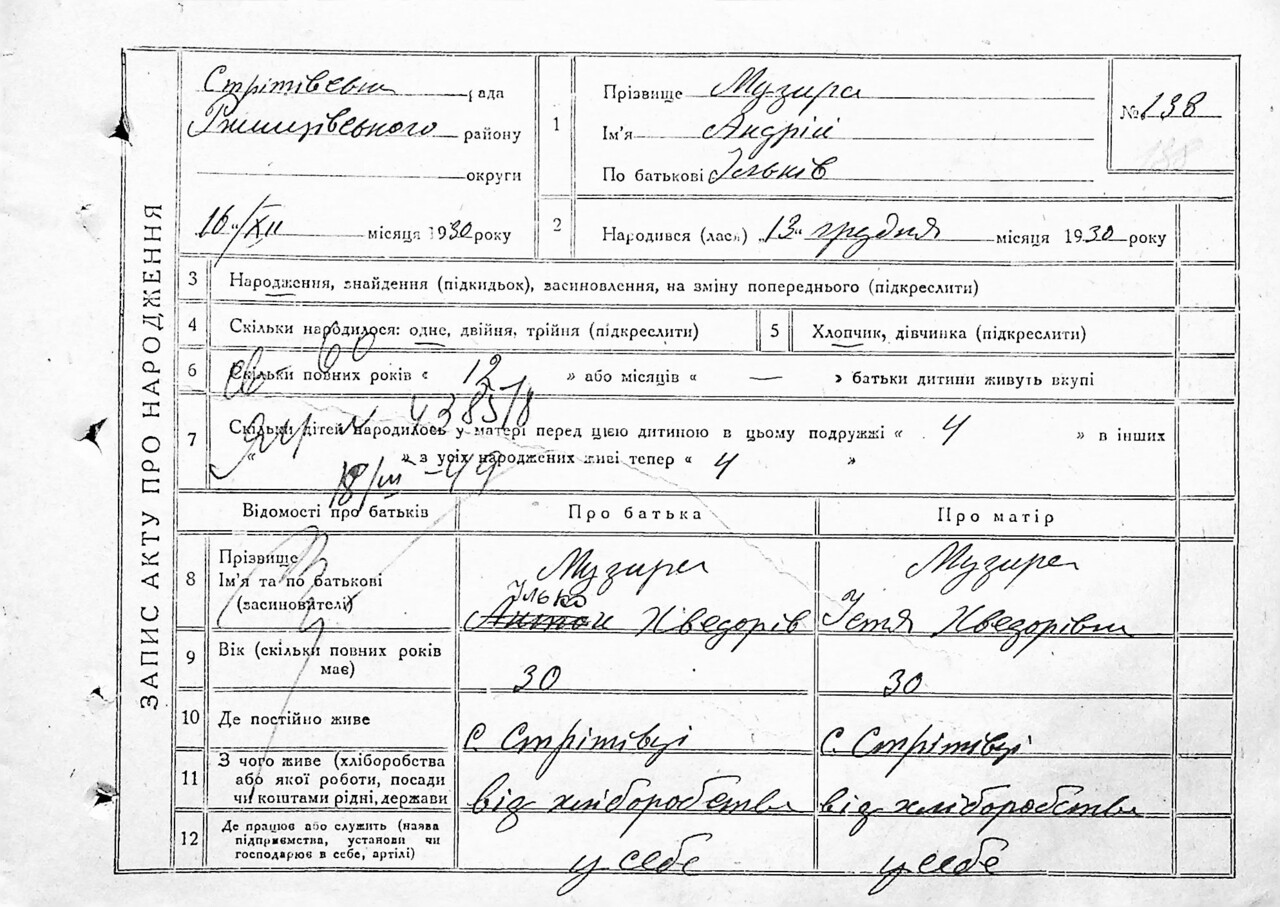 ЗАПИС АКТУ ПРО НАРОДЖЕННЯ
Стрітівська рада
Ржищівського району
округи
16/XII місяця 1930 року
1
Прізвище Музира
Ім'я Андрій
По батькові Ільків
№ 138
138
2
Народився (лася) „13" грудня місяця 1930 року
3 Народження, знайдення (підкидьок), засиновлення, на зміну попереднього (підкреслити)
4 Скільки народилося: одне, двійня, трійня (підкреслити)
5 Хлопчик, дівчинка (підкреслити)
6 Скільки повних років « 12 » або місяців « — » батьки дитини живуть вкупі
7 Скільки дітей народилось у матері перед цією дитиною в цьому подружжі « 4 » в інших
« » з усіх народжених живі тепер « 4 »
18/III – 49
Відомості про батьків Про батька Про матір
8 Прізвище
Ім'я та по батькові
(засиновителі)
Музира
Ілько
Антон Хведорів
Музира
Устя Хведорівна
9 Вік (скільки повних років має)
30
30
10 Де постійно живе
с. Стрітівці
с. Стрітівці
11 З чого живе (хліборобства
або якої роботи, посади
чи коштами рідні, держави
від хліборобства
від хліборобства
12 Де працює або служить (назва
підприємства, установи чи
господарює в себе, артілі)
у себе
у себе